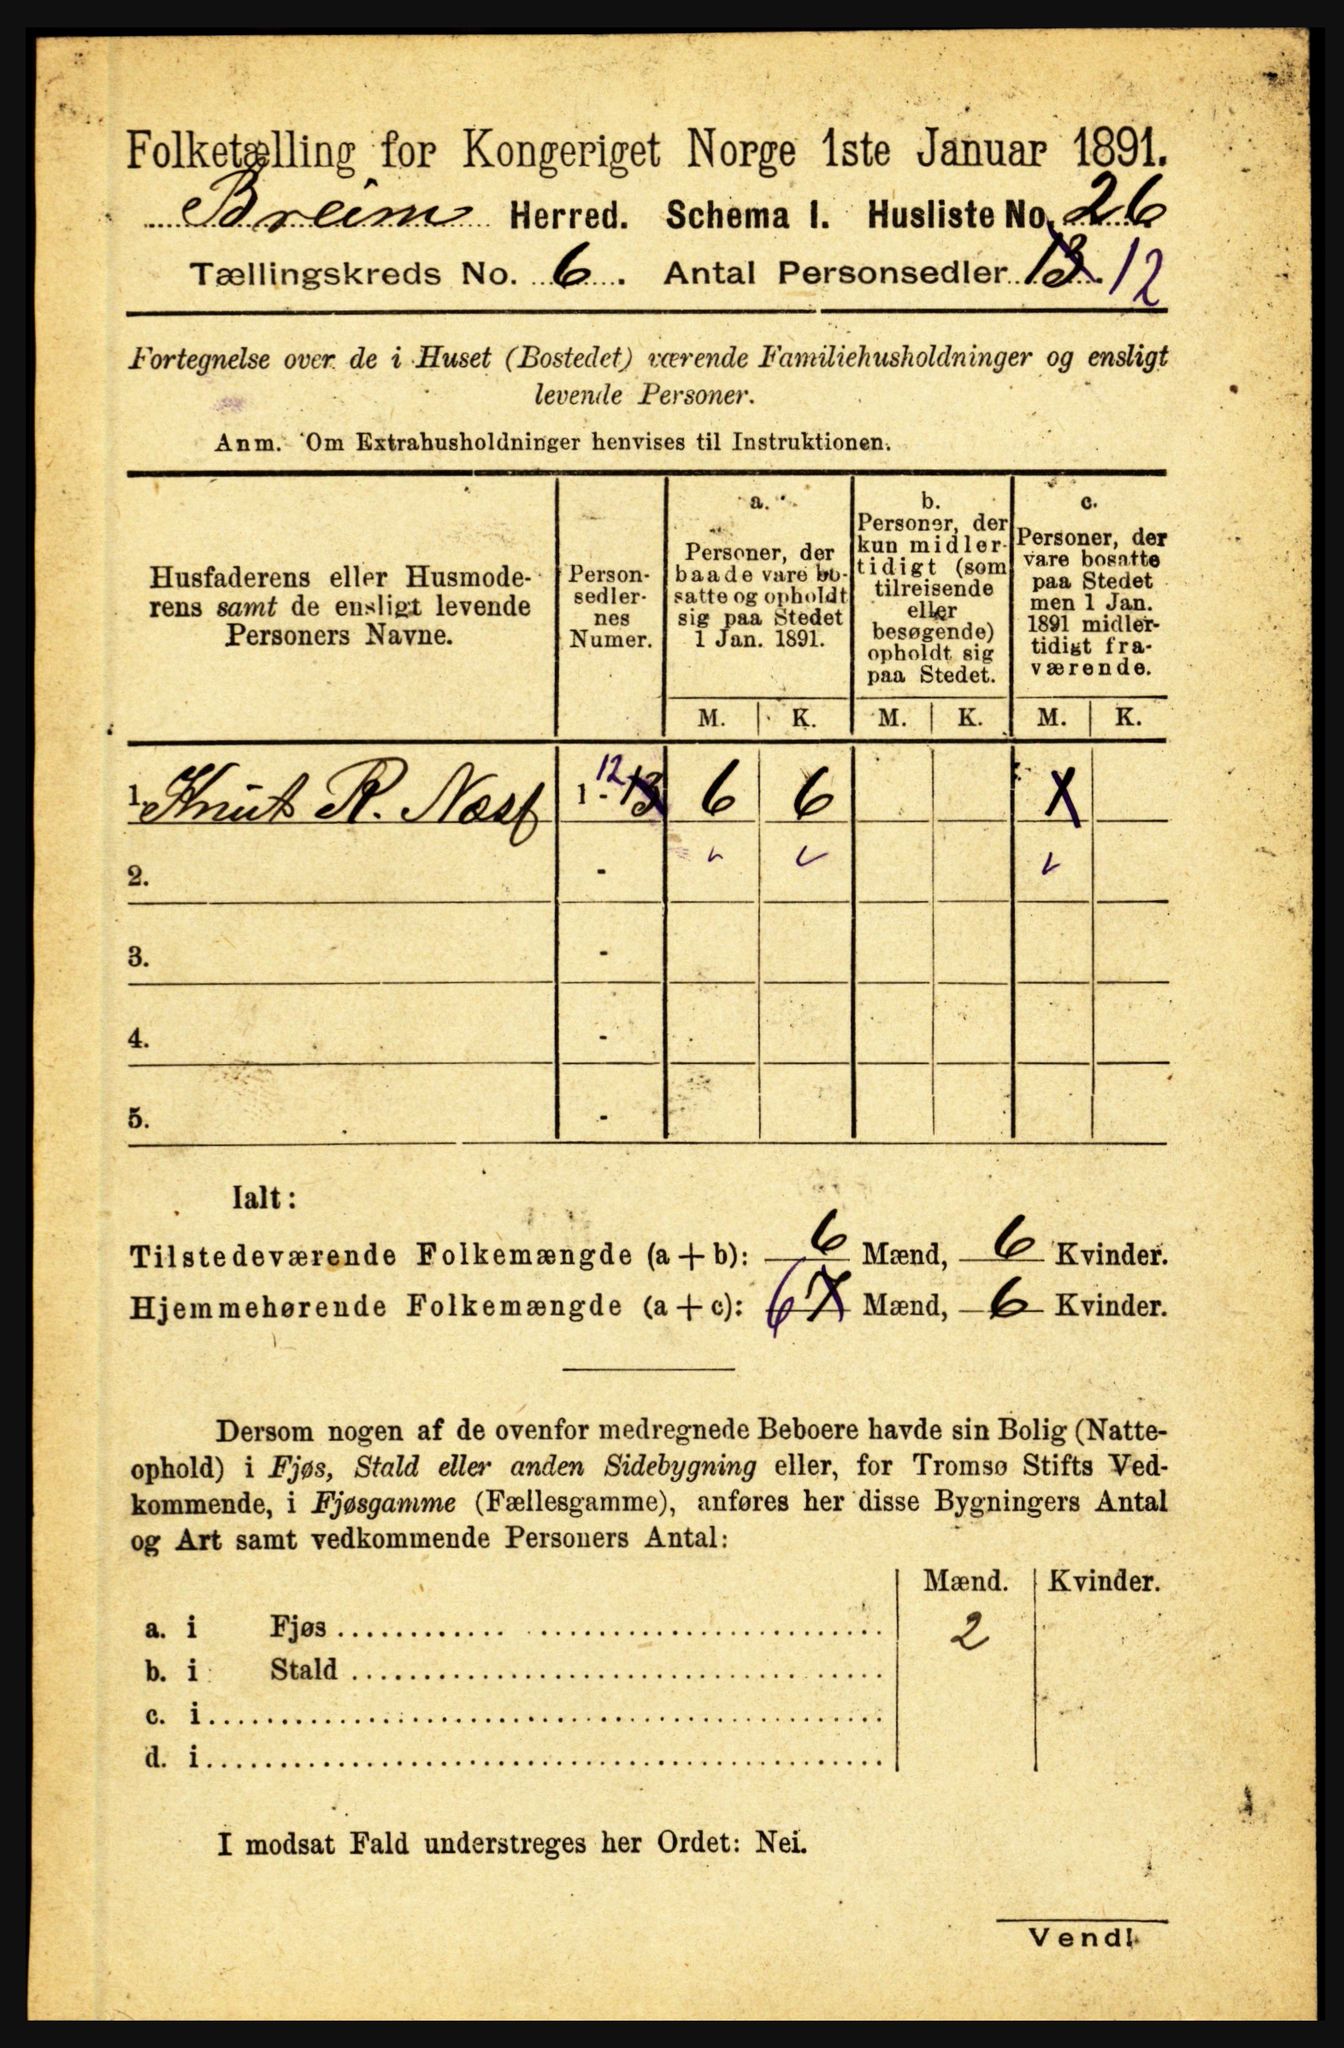 Folketælling for Kongeriget Norge 1ste Januar 1891.
Breim Herred. Schema I. Husliste No. 26
Tællingskreds No. 6. Antal Personsedler 13. 12
Fortegnelse over de i Huset (Bostedet) værende Familiehusholdninger og ensligt
levende Personer.
Anm. Om Extrahusholdninger henvises til Instruktionen.
Husfaderens eller Husmode-
rens samt de ensligt levende
Personers Navne.
Person-
sedler-
nes
Numer.
a.
Personer, der
baade vare bo-
satte og opholdt
sig paa Stedet
1 Jan. 1891.
b.
Personer, der
kun midler-
tidigt (som
tilreisende
eller
besøgende)
opholdt sig
paa Stedet.
c.
Personer, der
vare bosatte
paa Stedet
men 1 Jan.
1891 midler-
tidigt fra-
værende.
M. K. M. K. M. K.
1. Knut R. Næss 1 - 13 12 6 6
2. -
3. -
4. -
5. -
Ialt:
Tilstedeværende Folkemængde (a + b): 6 Mænd, 6 Kvinder.
Hjemmehørende Folkemængde (a + c): 6 7 Mænd, 6 Kvinder.
Dersom nogen af de ovenfor medregnede Beboere havde sin Bolig (Natte-
ophold) i Fjøs, Stald eller anden Sidebygning eller, for Tromsø Stifts Ved-
kommende, i Fjøsgamme (Fællesgamme), anføres her disse Bygningers Antal
og Art samt vedkommende Personers Antal:
Mænd. Kvinder.
a. i Fjøs 2
b. i Stald
c. i
d. i
I modsat Fald understreges her Ordet: Nei.
Vend!